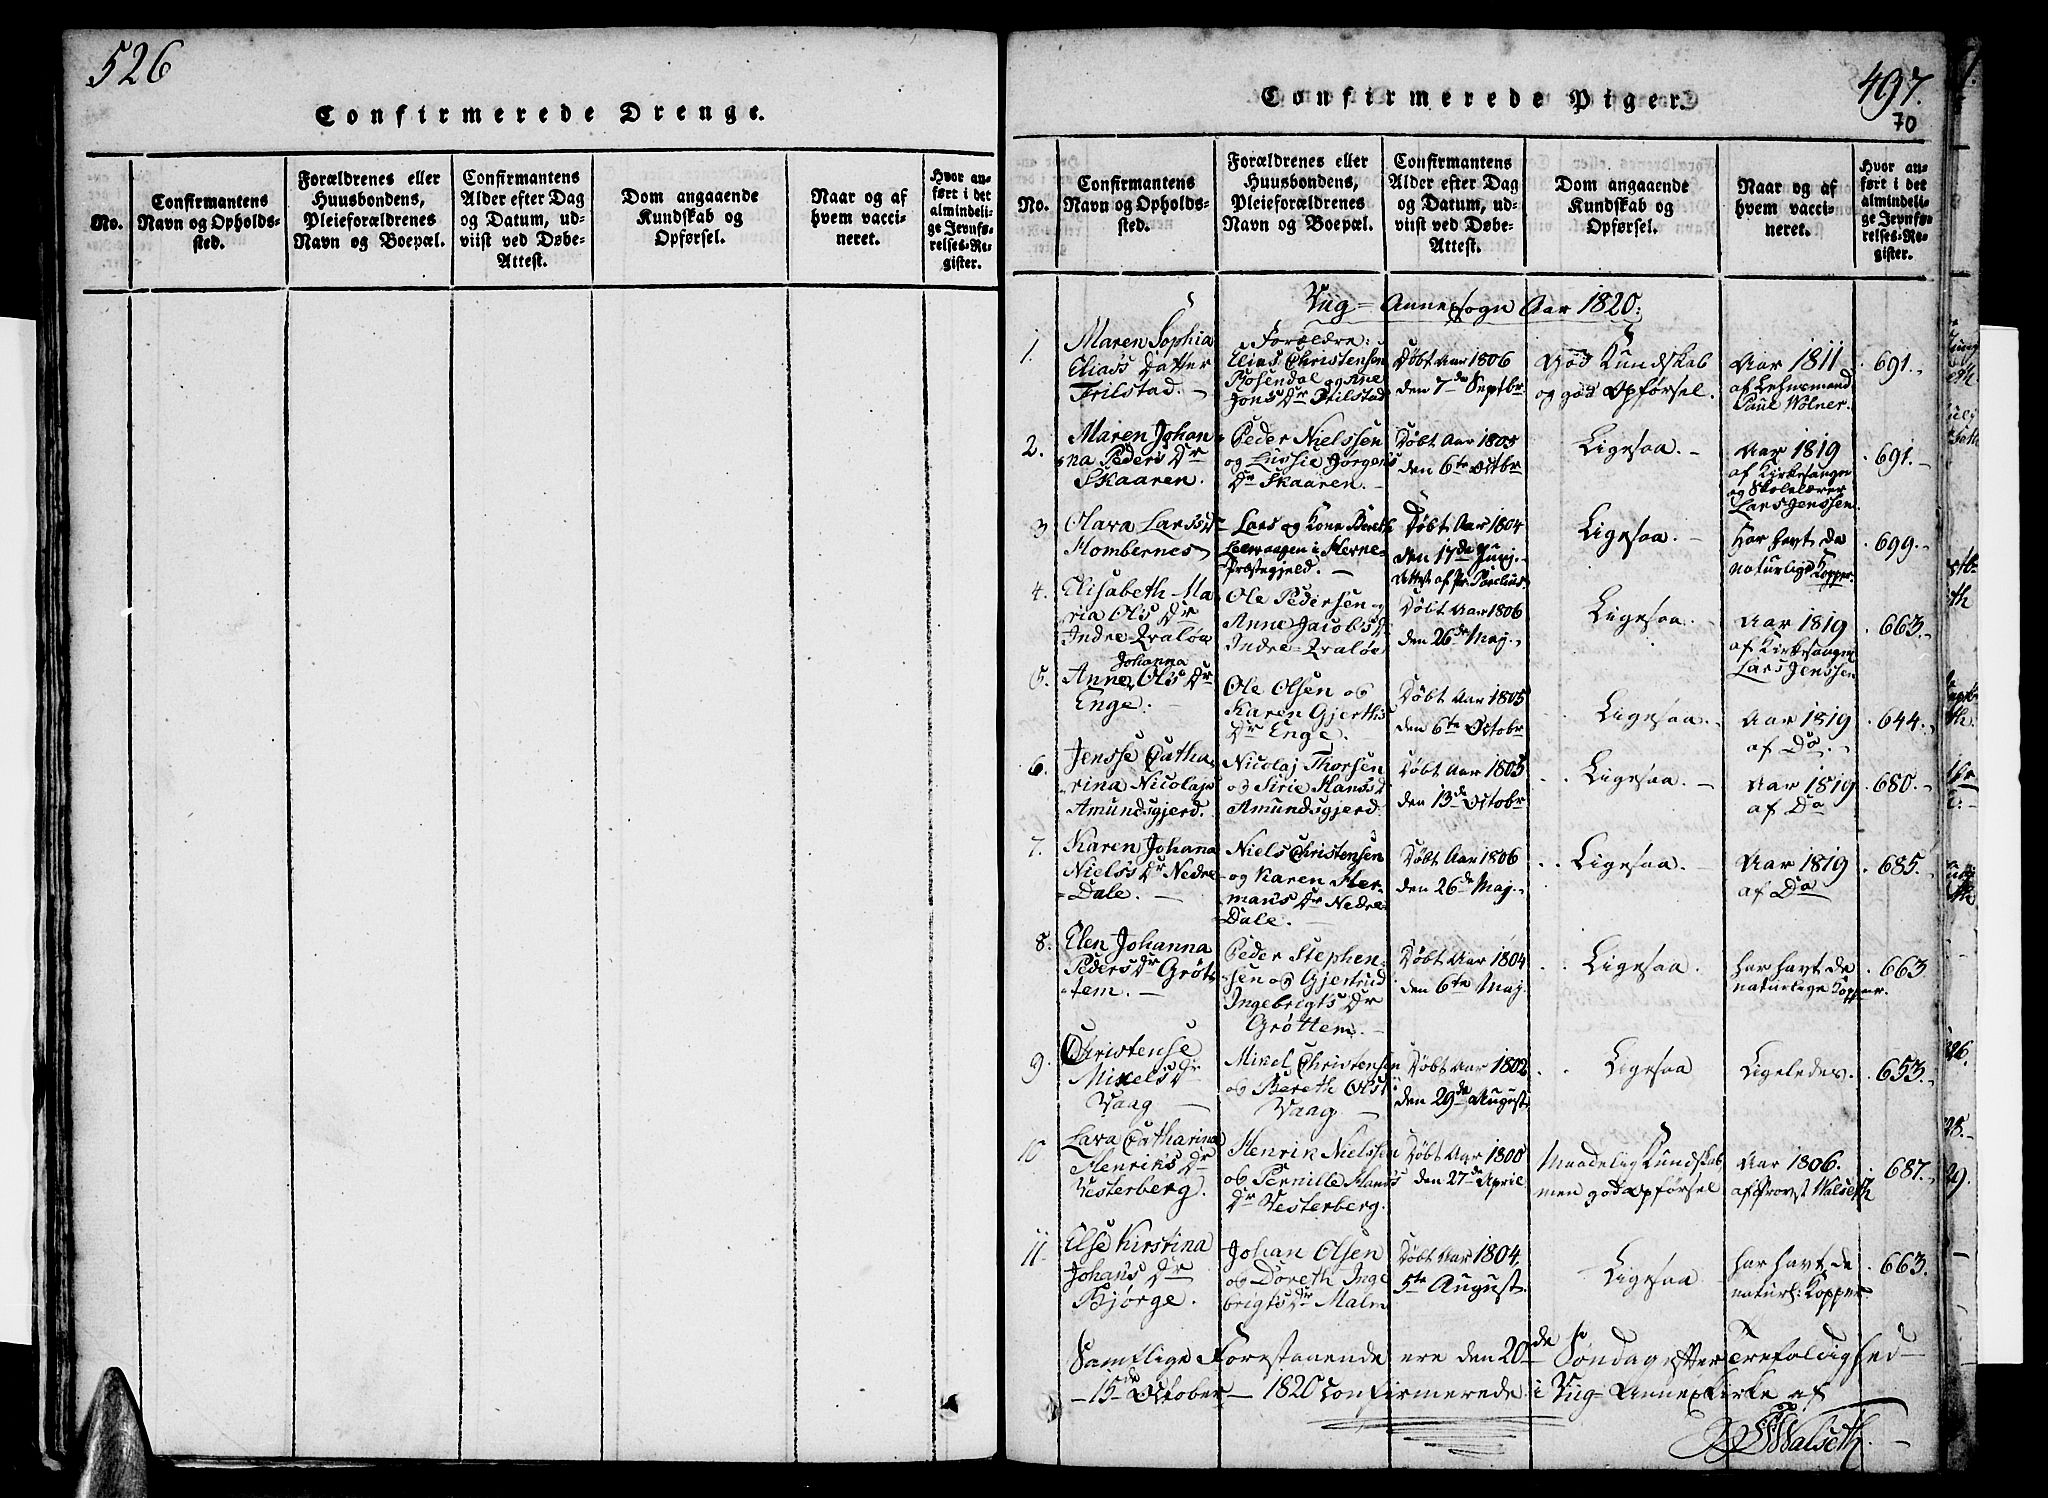 526
Confirmerede Drenge.
No.
Confirmantens
Navn og Opholds-
sted.
Forældrenes eller
Huusbondens,
Pleieforældrenes
Navn og Boepæl.
Confirmantens
Alder efter Dag
og Datum, ud-
viist ved Døbe-
Attest.
Dom angaaende
Kundskab og
Opførsel.
Naar og af
hvem vacci-
neret.
Hvor an-
ført i det
almindeli-
ge Jevnfø-
relses-Re-
gister.
Confirmerede Piger.
497.
70
No.
Confirmantens
Navn og Opholds-
sted.
Forældrenes eller
Huusbondens,
Pleieforældrenes
Navn og Boepæl.
Confirmantens
Alder efter Dag
og Datum, ud-
viist ved Døbe-
Attest.
Dom angaaende
Kundskab og
Opførsel.
Naar og af
hvem vacci-
neret.
Hvor an-
ført i det
almindeli-
ge Jevnfø-
relses-Re-
gister.
Vug-Annexsogn Aar 1820:
1.
Maren Sophia
Elias's Datter
Frilstad.
Forældre:
Elias Christensen
Rosendal og Ane
Jons Dr Frilstad
Døbt Aar 1806
den 7de Septbr
God Kundskab
og god Opførsel.
Aar 1811
af Lehnsmand
Paul Wolner.
691.
2.
Maren Johan
na Peders Dr
Skaaren.
Peder Nielssen
og Lussie Jørgens
Dr Skaaren.
Døbt Aar 1805
den 6te Octbr
Ligesaa.
Aar 1819
af Kirkesanger
og Skolelærer
Lars Jenssen.
691.
3
Olava Larss Dr
Hombernes
Lars og Kone Bereth
Leervaagen i Herne-
Præstegjeld.
Døbt Aar 1804
den 17de Junj.
Attest af Pr. Parelius.
Ligesaa.
Har havt de
naturlige Kopper.
699.
4.
Elisabeth Ma
ria Ols Dr
Indre-Qvaløe
Ole Pedersen og
Anne Jacobs Dr
Indre-Qvaløe
Døbt Aar 1806
den 26de Maj.
Ligesaa.
Aar 1819
af Kirkesanger
Lars Jenssen
663.
5.
Johanna
Anne Ols Dr
Enge.
Ole Olsen og
Karen Gjerths
Dr Enge.
Døbt Aar 1805
den 6te Octobr
Ligesaa.
Aar 1819
af Do.
644.
6.
Jensse Catha
rina Nicolajs
Amundsgjerd.
Nicolaj Thorsen
og Sirie Hans D
Amundsgjerd
Døbt Aar 1805
den 13de Octobr
Ligesaa.
Aar 1819
af Do
680.
7.
Karen Johana
Niels's Dr Nedre
Dale.
Niels Christensen
og Karen Her-
mans Dr Nedre
Dale.
Døbt Aar 1806
den 26de Maj.
Ligesaa.
Aar 1819
af Do
685.
8.
Elen Johanna
Peders Dr Grøt
tem.
Peder Stephen-
sen og Gjertrud
Ingebrigts Dr
Grøttem.
Døbt Aar 1804
den 6te Maj
Ligesaa.
har havt de
naturlige Kopper.
663
9.
Christense
Mikels Dr
Vaag
Mikel Christensen
og Bereth Ols D
Vaag
Døbt Aar 1802
den 29de August
Ligesaa
Ligeledes.
653.
10
Lava Catharina
Henriks Dr
Vesterberg.
Henrik Nielssen
og Pernille Hans's
Dr Vesterberg.
Døbt Aar 1800
den 27de April
Maadelig Kundskab
men god opførsel
Aar 1806.
af Provst Walseth
687.
11
Else Kirstina
Johans Dr
Bjørge.
Johan Olsen
og Doreth Inge
brigts Dr Malm
Døbt Aar 1804.
5te August.
Ligesaa
har havt de
naturl: Kopper.
663.
Samtlige Forestaaende ere den 20de Søndag efter Trefoldighed
15de October 1820 confirmerede i Vug-Annexkirke af
Walseth.